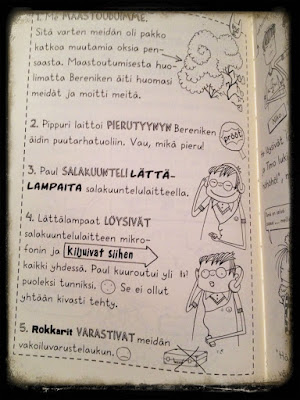 1. Me MAASTOUDUIMME.
Sitä varten meidän oli pakko
hatkoa muutamia oksia pen-
saasta. Maastoutumisesta huo-
limatta Bereniken äiti huomasi
meidät ja moitti meitä.
2. Pippuri laittoi PIERUTYYNYN Bereniken
äidin puutarhatuoliin. Vau, mikä pieru!
prööt
3. Paul SALAKUUNTELI LÄTTÄ-
LAMPAITA salakuuntelulaitteella.
4. Lättälampaat LÖYSIVÄT
salakuuntelulaitteen mikro-
fonin ja Kiljuivat siihen
kaikki yhdessä. Paul kuuroutui yli
puoleksi tunniksi. Se ei ollut
yhtään kivasti tehty.
5. Rokkarit VARASTIVAT meidän
vakoiluvarustelaukun.